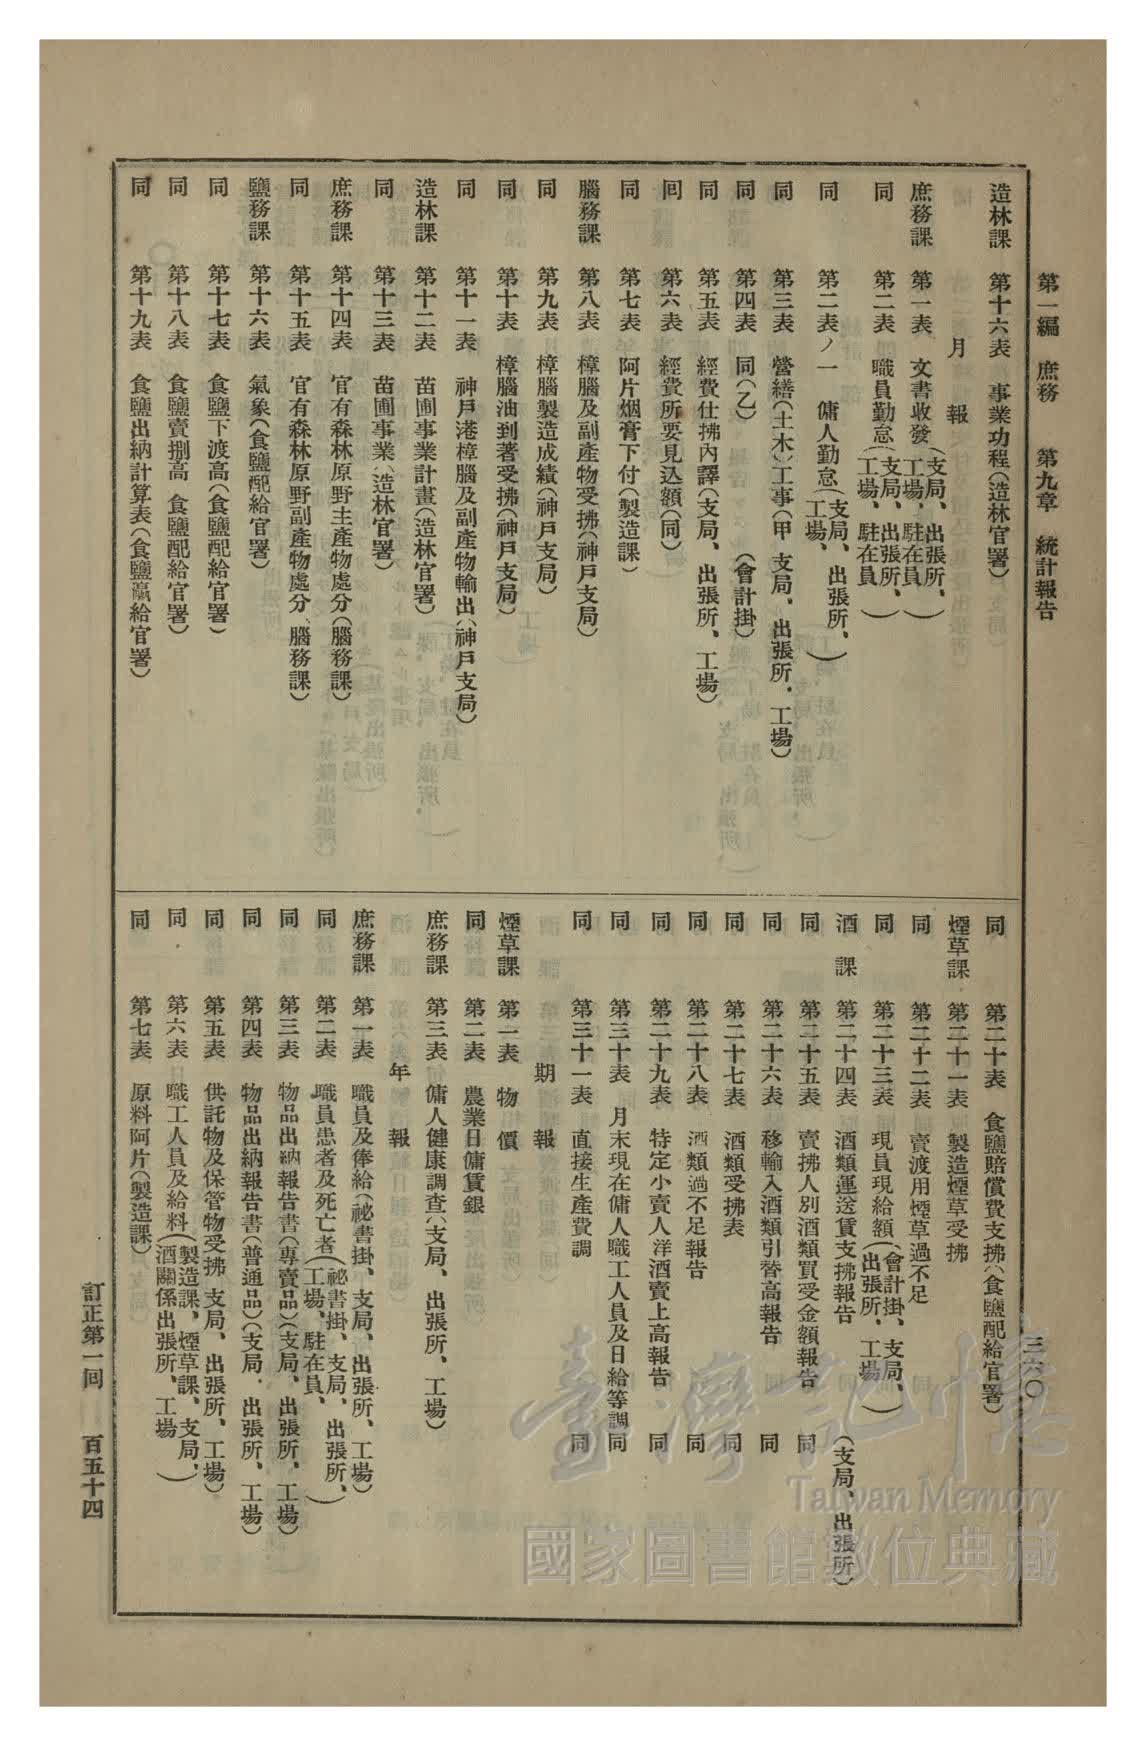 第一編 庶務 第九章 統計報告
三六〇
造林課 第十六表 事業功程(造林官署)
月報
庶務課 第一表 文書收發(支局、出張所、工場、駐在員)
同 第二表 職員勤怠(支局、出張所、工場、駐在員)
同 第二表ノ一 傭人勤怠(支局、出張所、工場、)
同 第三表 營繕(土木)工事(甲 支局、出張所、工場)
同 第四表 同(乙) (會計掛)
同 第五表 經費仕拂內譯(支局、出張所、工場)
同 第六表 經費所要見込額(同)
同 第七表 阿片烟膏下付(製造課)
腦務課 第八表 樟腦及副產物受拂(神戶支局)
同 第九表 樟腦製造成績(神戶支局)
同 第十表 樟腦油到著受拂(神戶支局)
同 第十一表 神戶港樟腦及副產物輸出(神戶支局)
造林課 第十二表 苗圃事業計畫(造林官署)
同 第十三表 苗圃事業(造林官署)
庶務課 第十四表 官有森林原野主產物處分(腦務課)
同 第十五表 官有森林原野副產物處分(腦務課)
鹽務課 第十六表 氣象(食鹽配給官署)
同 第十七表 食鹽下渡高(食鹽配給官署)
同 第十八表 食鹽賣捌高 食鹽配給官署)
同 第十九表 食鹽出納計算表(食鹽配給官署)
同 第二十表 食鹽賠償費支拂(食鹽配給官署)
煙草課 第二十一表 製造煙草受拂
同 第二十二表 賣渡用煙草過不足
同 第二十三表 現員現給額(會計掛、支局、出張所、工場)
酒課 第二十四表 酒類運送賃支拂報告 (支局、出張所)
同 第二十五表 賣拂人別酒類買受金額報告 同
同 第二十六表 移輸入酒類引替高報告 同
同 第二十七表 酒類受拂表 同
同 第二十八表 酒類過不足報告 同
同 第二十九表 特定小賣人洋酒賣上高報告 同
同 第三十表 月末現在傭人職工人員及日給等調 同
同 第三十一表 直接生產費調 同
期報
煙草課 第一表 物價
同 第二表 農業日傭賃銀
庶務課 第三表 傭人健康調查(支局、出張所、工場)
年報
庶務課 第一表 職員及俸給(祕書掛、支局、出張所、工場)
同 第二表 職員患者及死亡者(祕書掛、支局、出張所、工場、駐在員、)
同 第三表 物品出納報告書(專賣品)(支局、出張所、工場)
同 第四表 物品出納報告書(普通品)(支局、出張所、工場)
同 第五表 供託物及保管物受拂 支局、出張所、工場)
同 第六表 職工人員及給料(製造課、煙草課、支局、酒關係出張所、工場)
同 第七表 原料阿片(製造課)
訂正第一回 百五十四
臺灣記憶
Taiwan Memory
國家圖書館數位典藏